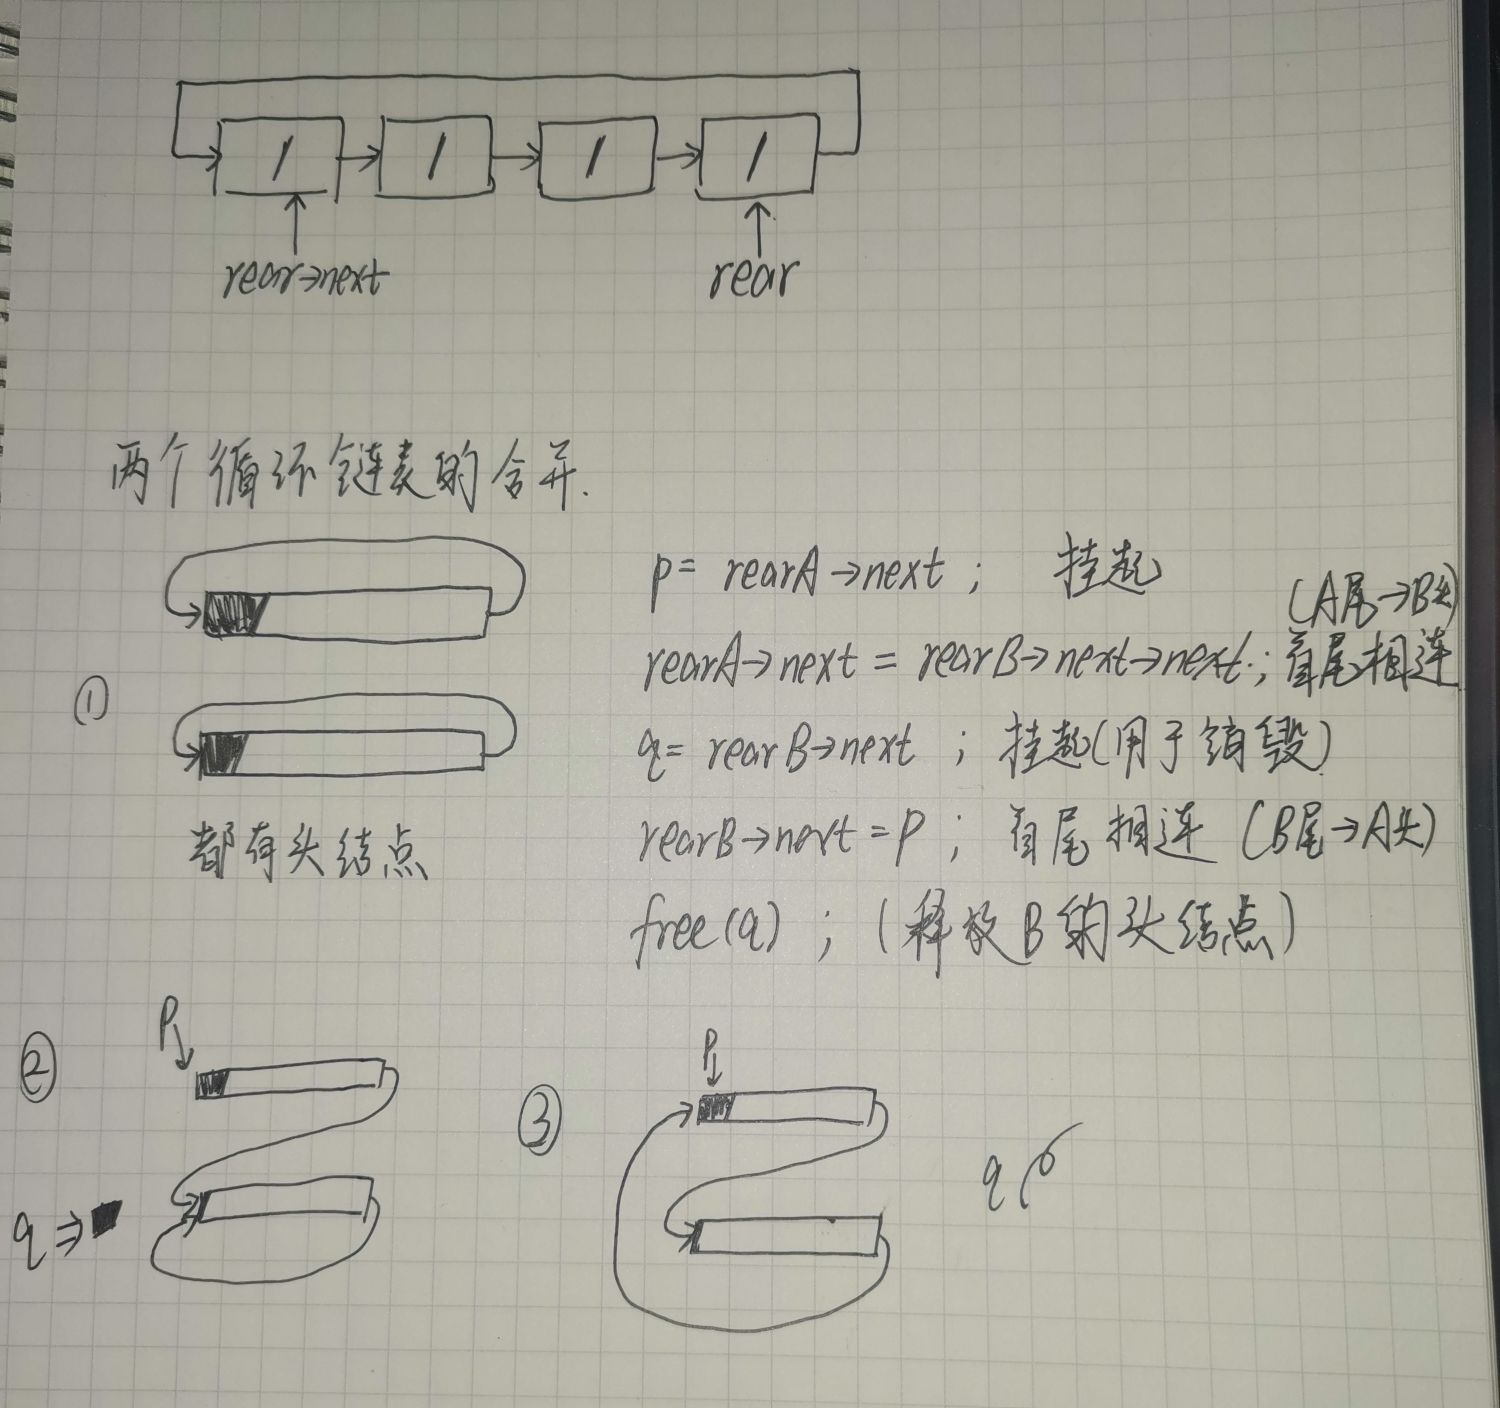 rear→next
rear
两个循环链表的合并.
p= rearA→next ; 挂起
(A尾→B头)
rearA→next = rearB→next→next ; 首尾相连
①
q= rearB→next ; 挂起(用于销毁)
rearB→next=P ; 首尾相连 (B尾→A头)
都有头结点
free(q) ; (释放B的头结点)
②
P
q
③
P
q